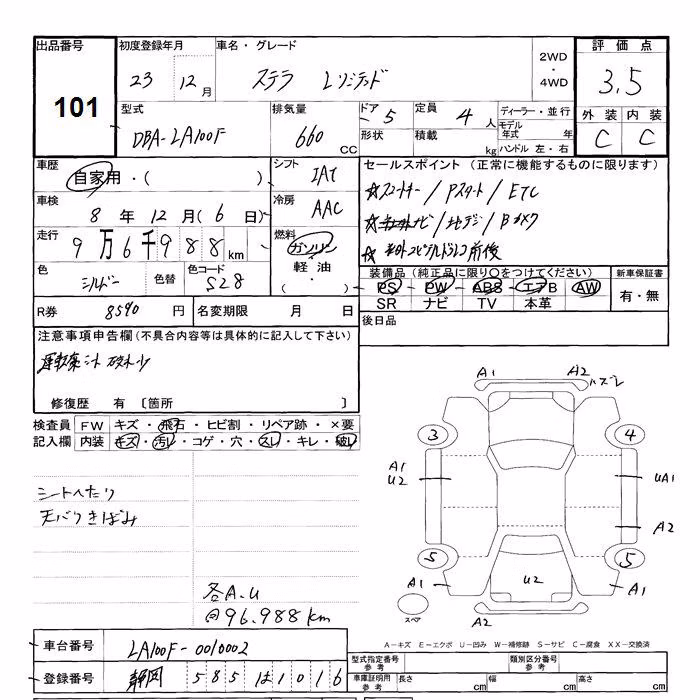 出品番号 101
初度登録年月 23 12月
車名・グレード ステラ Lリミテッド
2WD・4WD
評価点 3.5
外装 C 内装 C
型式 DBA-LA100F
排気量 660 CC
ドア 5
形状
定員 4人
積載 kg
ディーラー・並行
モデル年式 年
ハンドル 左・右
車歴 自家用・( )
シフト IAT
車検 8年12月(6日)
冷房 AAC
走行 9万6千988km
燃料 ガソリン・軽油・( )
色 シルバー 色替 色コード S28
セールスポイント (正常に機能するものに限ります)
☆スマートキー/Pスタート/ETC
ナビ/地デジ/Bカメラ
前後
装備品 (純正品に限り○をつけてください)
PS・PW・ABS・エアB・AW
SR ナビ TV 本革
新車保証書 有・無
R券 8590円
名変期限 月 日
後日品
注意事項申告欄 (不具合内容等は具体的に記入して下さい)
運転席シート
修復歴 有 〔箇所 〕
検査員記入欄
FW キズ・飛石・ヒビ割・リペア跡・×要
内装 キズ・汚レ・コゲ・穴・スレ・キレ・破レ
シートへたり
天バリきばみ
各A.U
96.988km
A1 A2 ハズレ
3 4
A1
U2
UA1
A2
5 5
A1 U2 A1
スペア
A2
A-キズ E-エクボ U-凹み W-補修跡 S-サビ C-腐食 XX-交換済
車台番号 LA100F-0010002
登録番号 静岡 585 は 1016
型式指定番号 参考
類別区分番号 参考
車庫証明用 参考 長さ cm 幅 cm 高さ cm